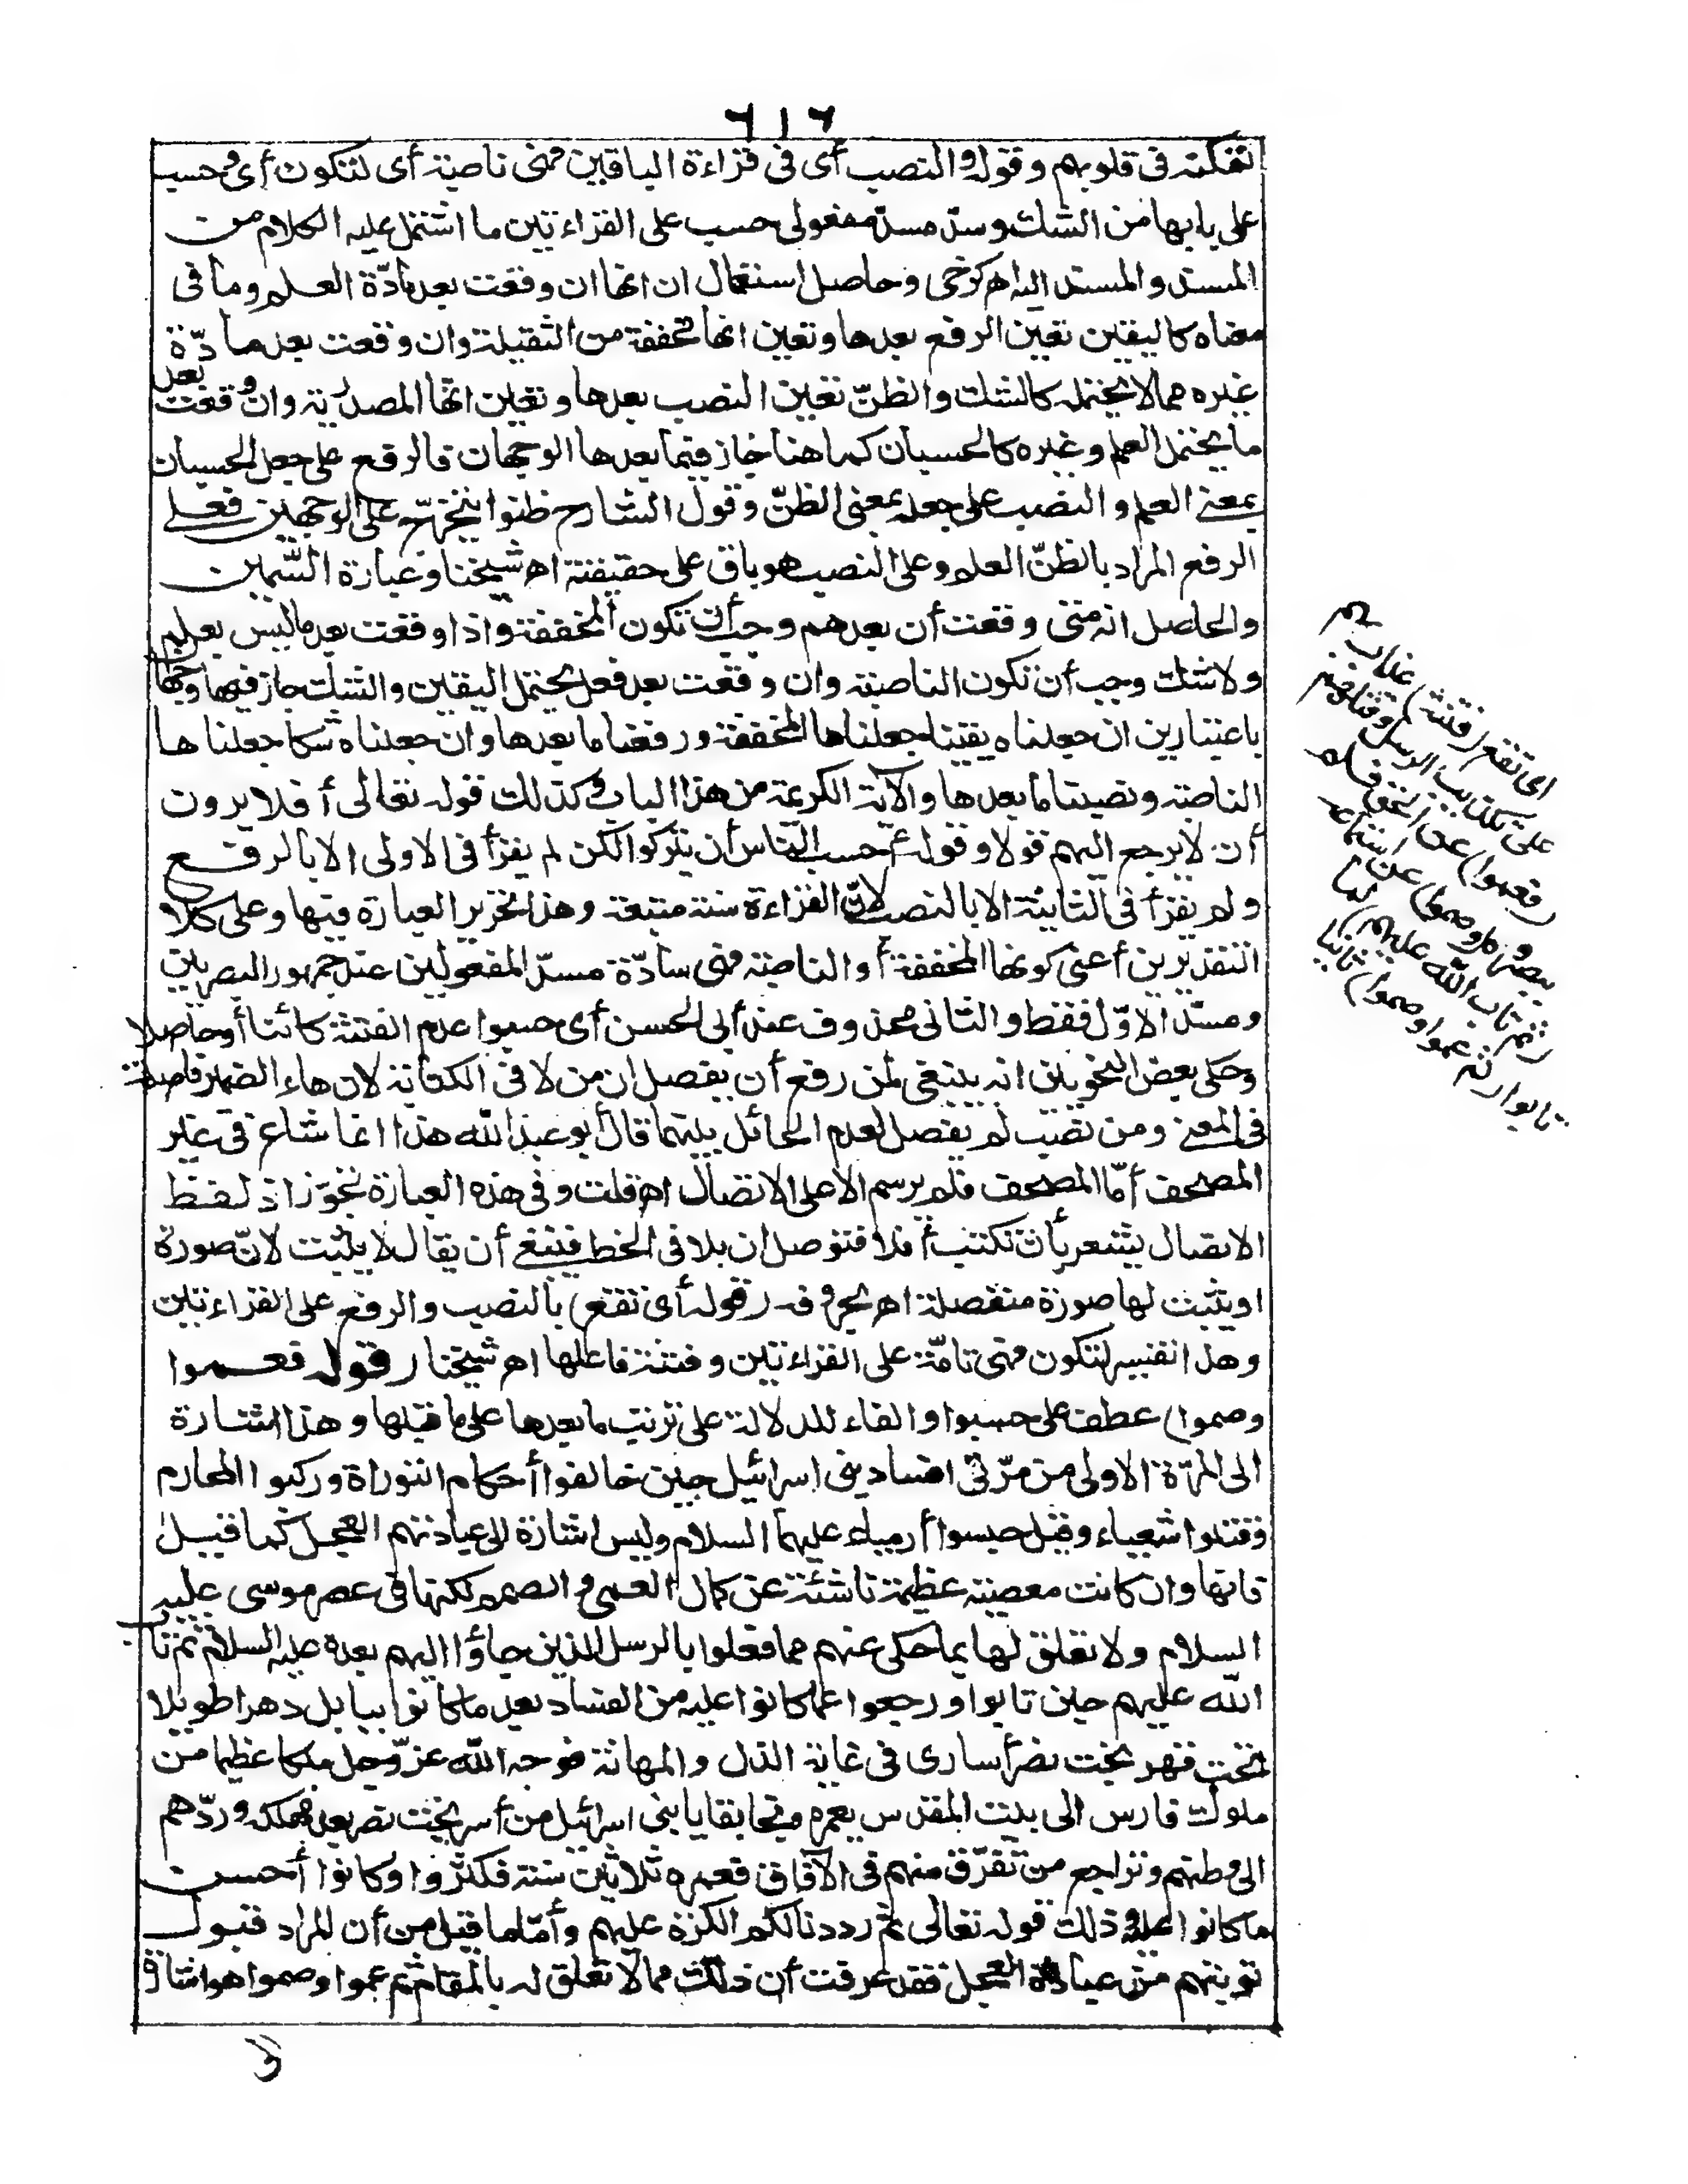 ٦١٦
لتمكنه فى قلوبهم وقوله والنصب أى فى قراءة الباقين فهى ناصبة أى لتكون أى وحسب
على بابها من الشك وسد مسدّ مفعولى حسب على القراءتين ما اشتمل عليه الكلام من
المسند والمسند اليه اهـ كرخى وحاصل استعمال ان انها ان وقعت بعد مادّة العلم وما فى
معناه كاليقين تعين الرفع بعدها وتعين انها مخففة من الثقيلة وان وقعت بعد مادّة
غيره مما لا يحتمله كالشك والظنّ تعين النصب بعدها وتعين انها المصدرية وان وقعت بعد
ما يحتمل العلم وغيره كالحسبان كما هنا جاز فيما بعدها الوجهان فالرفع على جعل الحسبان
بمعنى العلم والنصب على جعله بمعنى الظنّ وقول الشارح ظنوا يتخرّج على الوجهين فعلى
الرفع المراد بالظنّ العلم وعلى النصب هو باق على حقيقته اهـ شيخنا وعبارة السّمين
والحاصل انه متى وقعت أن بعد علم وجب أن تكون المخففة واذا وقعت بعد ما ليس بعلم
ولا شك وجب أن تكون الناصبة وان وقعت بعد فعل يحتمل اليقين والشك جاز فيها وجهان
باعتبارين ان جعلناه يقينا جعلناها المخففة ورفعنا ما بعدها وان جعلناه شكا جعلناها
الناصبة ونصبنا ما بعدها والآية الكريمة من هذا الباب وكذلك قوله تعالى أفلا يرون
أن لا يرجع اليهم قولا وقوله أحسب النّاس أن يتركوا لكن لم يقرأ فى الاولى الا بالرفع
ولم يقرأ فى الثانية الا بالنصب لانّ القراءة سنة متبعة وهذا تحرير العبارة فيها وعلى كلا
التقديرين أعنى كونها المخففة أو الناصبة فهى سادّة مسدّ المفعولين عند جمهور البصريين
ومسدّ الاوّل فقط والثانى محذوف عند أبى الحسن أى حسبوا عدم الفتنة كائنا أو حاصلا
وحكى بعض النحويين انه ينبغى لمن رفع أن يفصل ان من لا فى الكتابة لان هاء الضمير فاصلة
فى المعنى ومن نصب لم يفصل لعدم الحائل بينهما قال أبو عبد الله هذا انما شاع فى غير
المصحف أمّا المصحف فلم يرسم الا على الاتصال اهـ قلت وفى هذه العبارة تجوّز اذ لفظ
الاتصال يشعر بأن تكتب أنلا فتوصل ان بلا فى الخط فينبغى أن يقال لا يثبت لانّ صورة
او يثبت لها صورة منفصلة اهـ بحروفه (قوله أى تقع) بالنصب والرفع على القراءتين
وهذا تفسير لتكون فهى تامّة على القراءتين وفتنة فاعلها اهـ شيخنا (قوله فعموا
وصموا) عطف على حسبوا والفاء للدلالة على ترتب ما بعدها على ما قبلها وهذا اشارة
الى المرّة الاولى من مرّتى افساد بنى اسرائيل حين خالفوا أحكام التوراة وركبوا المحارم
وقتلوا شعياء وقيل حبسوا أرمياء عليهما السلام وليس اشارة الى عبادتهم العجل كما قيل
فانها وان كانت معصية عظيمة ناشئة عن كمال العمى والصمم لكنها فى عصر موسى عليه
السلام ولا تعلق لها بما حكى عنهم مما فعلوا بالرسل الذين جاؤا اليهم بعده عليه السلام ثم تاب
الله عليهم حين تابوا ورجعوا عما كانوا عليه من الفساد بعد ما كانوا ببابل دهرا طويلا
تحت قهر بخت نصر أسارى فى غاية الذل والمهانة فوجه الله عزّ وجل ملكا عظيما من
ملوك فارس الى بيت المقدس يعمره ونجا بقايا بنى اسرائيل من أسر بخت نصر بعد مهلكه وردّهم
الى وطنهم وتراجع من تفرّق منهم فى الآفاق فعمره ثلاثين سنة فكثروا وكانوا أحسن
ما كانوا عليه وذلك قوله تعالى ثم رددنا لكم الكرة عليهم وأمّا ما قيل من أن المراد قبول
توبتهم من عبادة العجل فقد عرفت أن ذلك مما لا تعلق له بالمقام ثم عموا وصموا هو اشارة
اى تقع (فتنة) عذاب بهم
على تكذيب الرسل وقتلهم
(فعموا) عن الحق فلم
يبصروه (وصموا) عن استماعه
(ثم تاب الله عليهم) لما
تابوا (ثم عموا وصموا) ثانيا